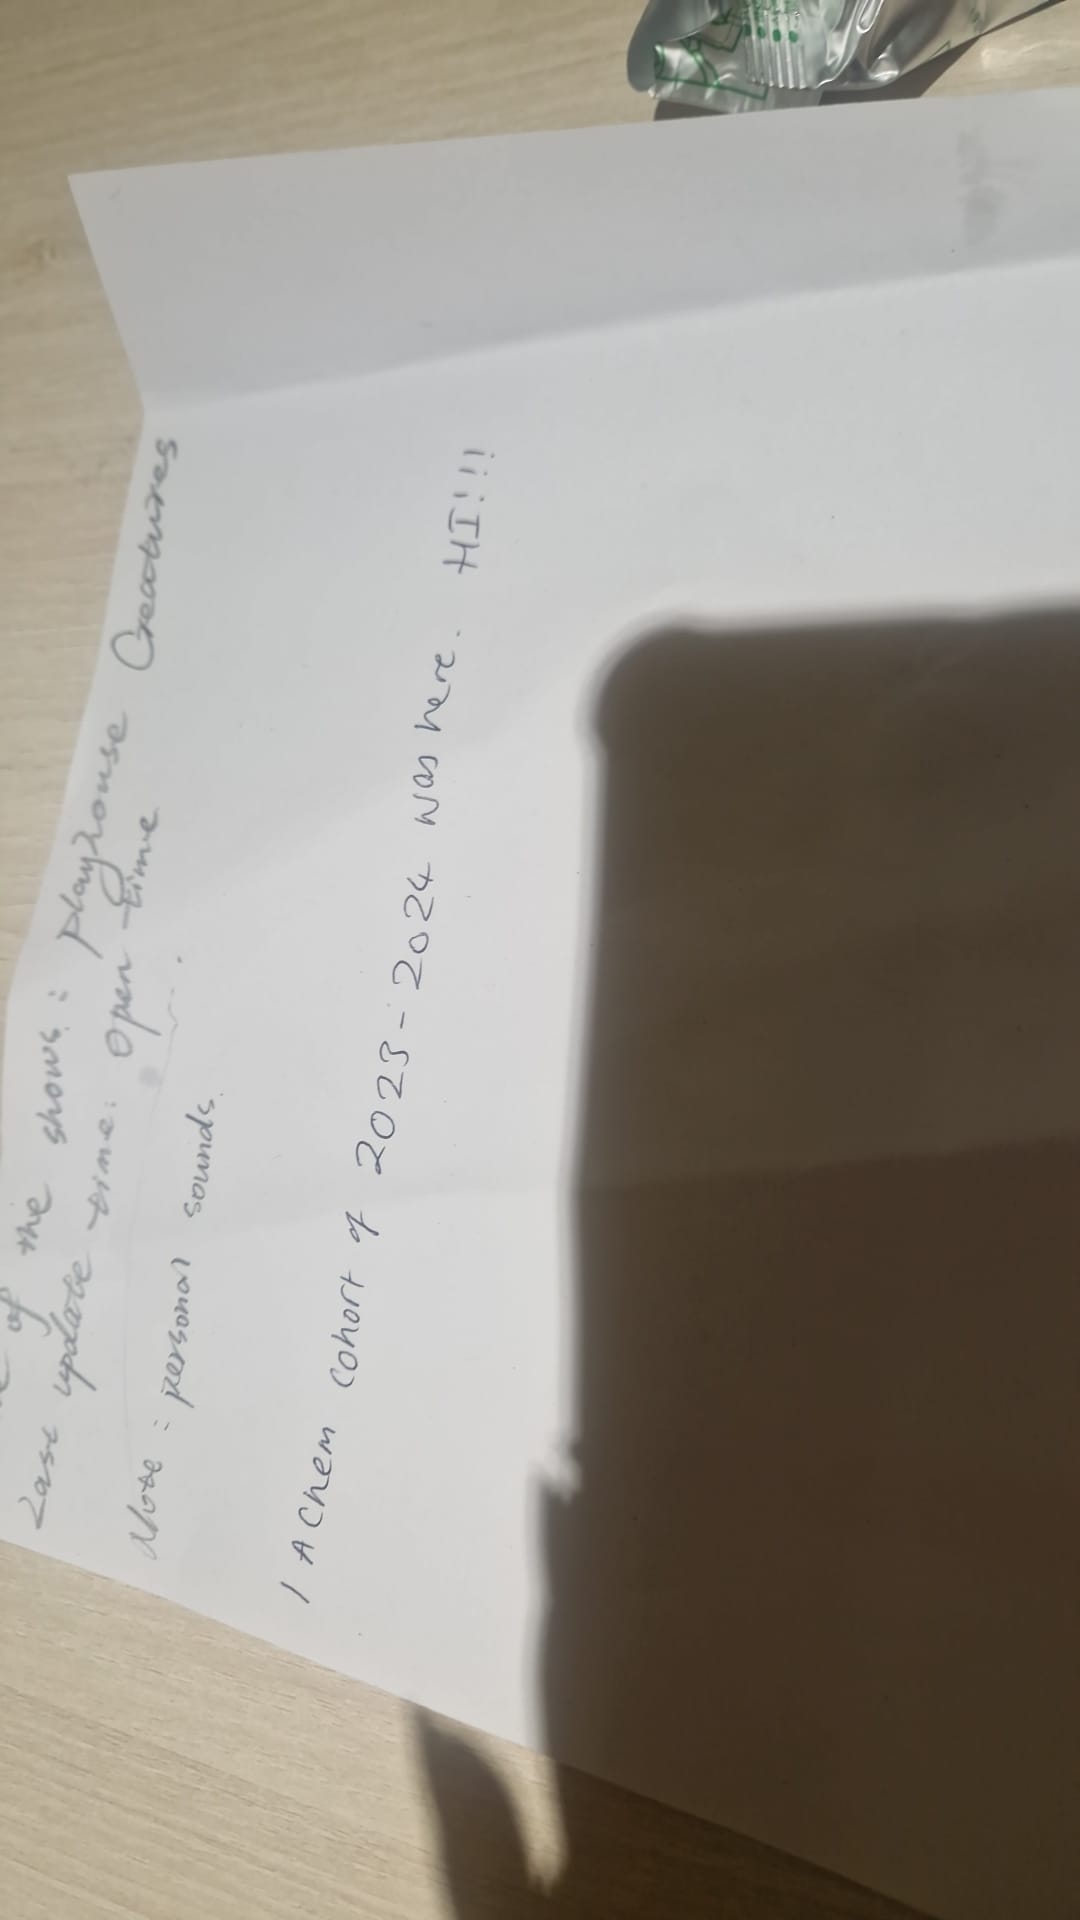 of the shows: playhouse Creatures
Last update time: open time
Note: personal sounds.
1 A Chem cohort of 2023-2024 was here. HI!!!